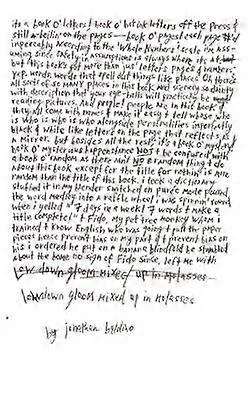 its a book o' letters! book o' hot ink letters off the press &
still wrigglin' on the pages — book o' pages! each page #'d
impeccably according to the 'Whole Numbers' scale i'm ass-
uming since safety in assumptions is always where its at but
but this book's got more than just letters pages & numbers.
yep. words. words that spell out things like places. Oh there's
all sorts of so MANY places in this book. And scenery so dicily
with description that your eye-balls will practically be
reading pictures. And people! people are in this book
they all come with names & make it easy t tell whose who
is who is who is who alongside personalities imperfally
black & white like letters on the page that reflect a
mirror. but besides all the rest, its a book o' mystery
book o' mysterious happenstance NOT t be confused with
a book o' random as there aint NO random thing t do
about this book except for the title for nothin' is more
random than the title of this book. i took a dictionary
stuffed it in my blender switched on puree mode poured
the word medley into a raffle wheel i was sprung round
when i yelled "7 days in a week! 7 words t make a
title complete!" & Fido, my pet tree monkey whom i
trained t know English who was going t pull the paper
pieces hence prevent bias on my part & t prevent bias on
his i ordered he put on a banana blindfold he stumbled
about the bone no sign of Fido since, left me with
low down gloom mixed up in molasses
lowdown gloom mixed up in molasses
by jonathan